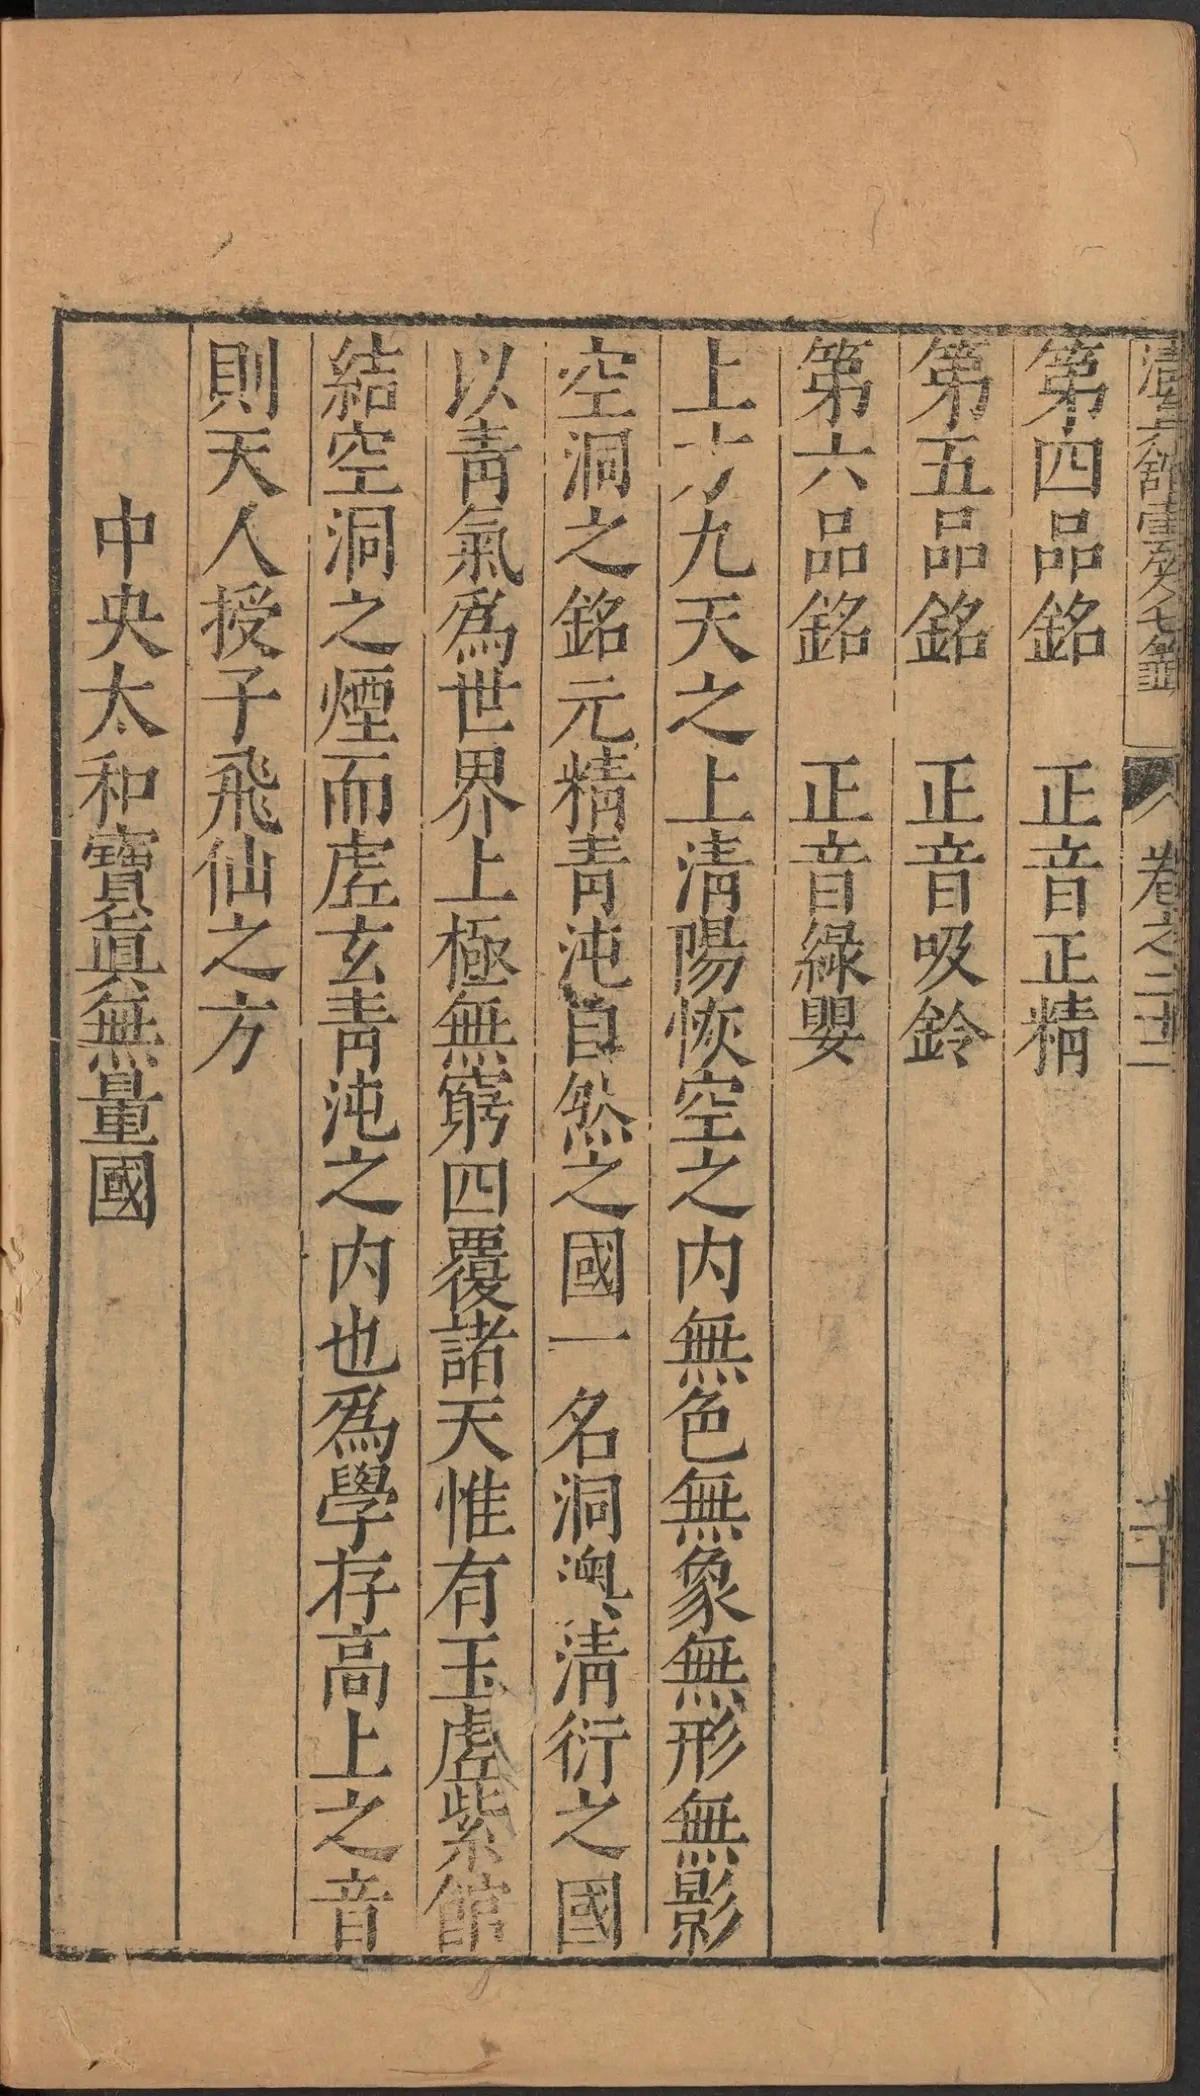 卷之二十二
二十
第四品銘 正音正精
第五品銘 正音吸鈴
第六品銘 正音綠嬰
上方九天之上清陽恢空之内無色無象無形無影
空洞之銘元精青沌自然之國一名洞澳清衍之國
以青氣爲世界上極無窮四覆諸天惟有玉虗紫館
結空洞之煙而虗玄青沌之内也爲學存高上之音
則天人授子飛仙之方
中央太和寶眞無量國